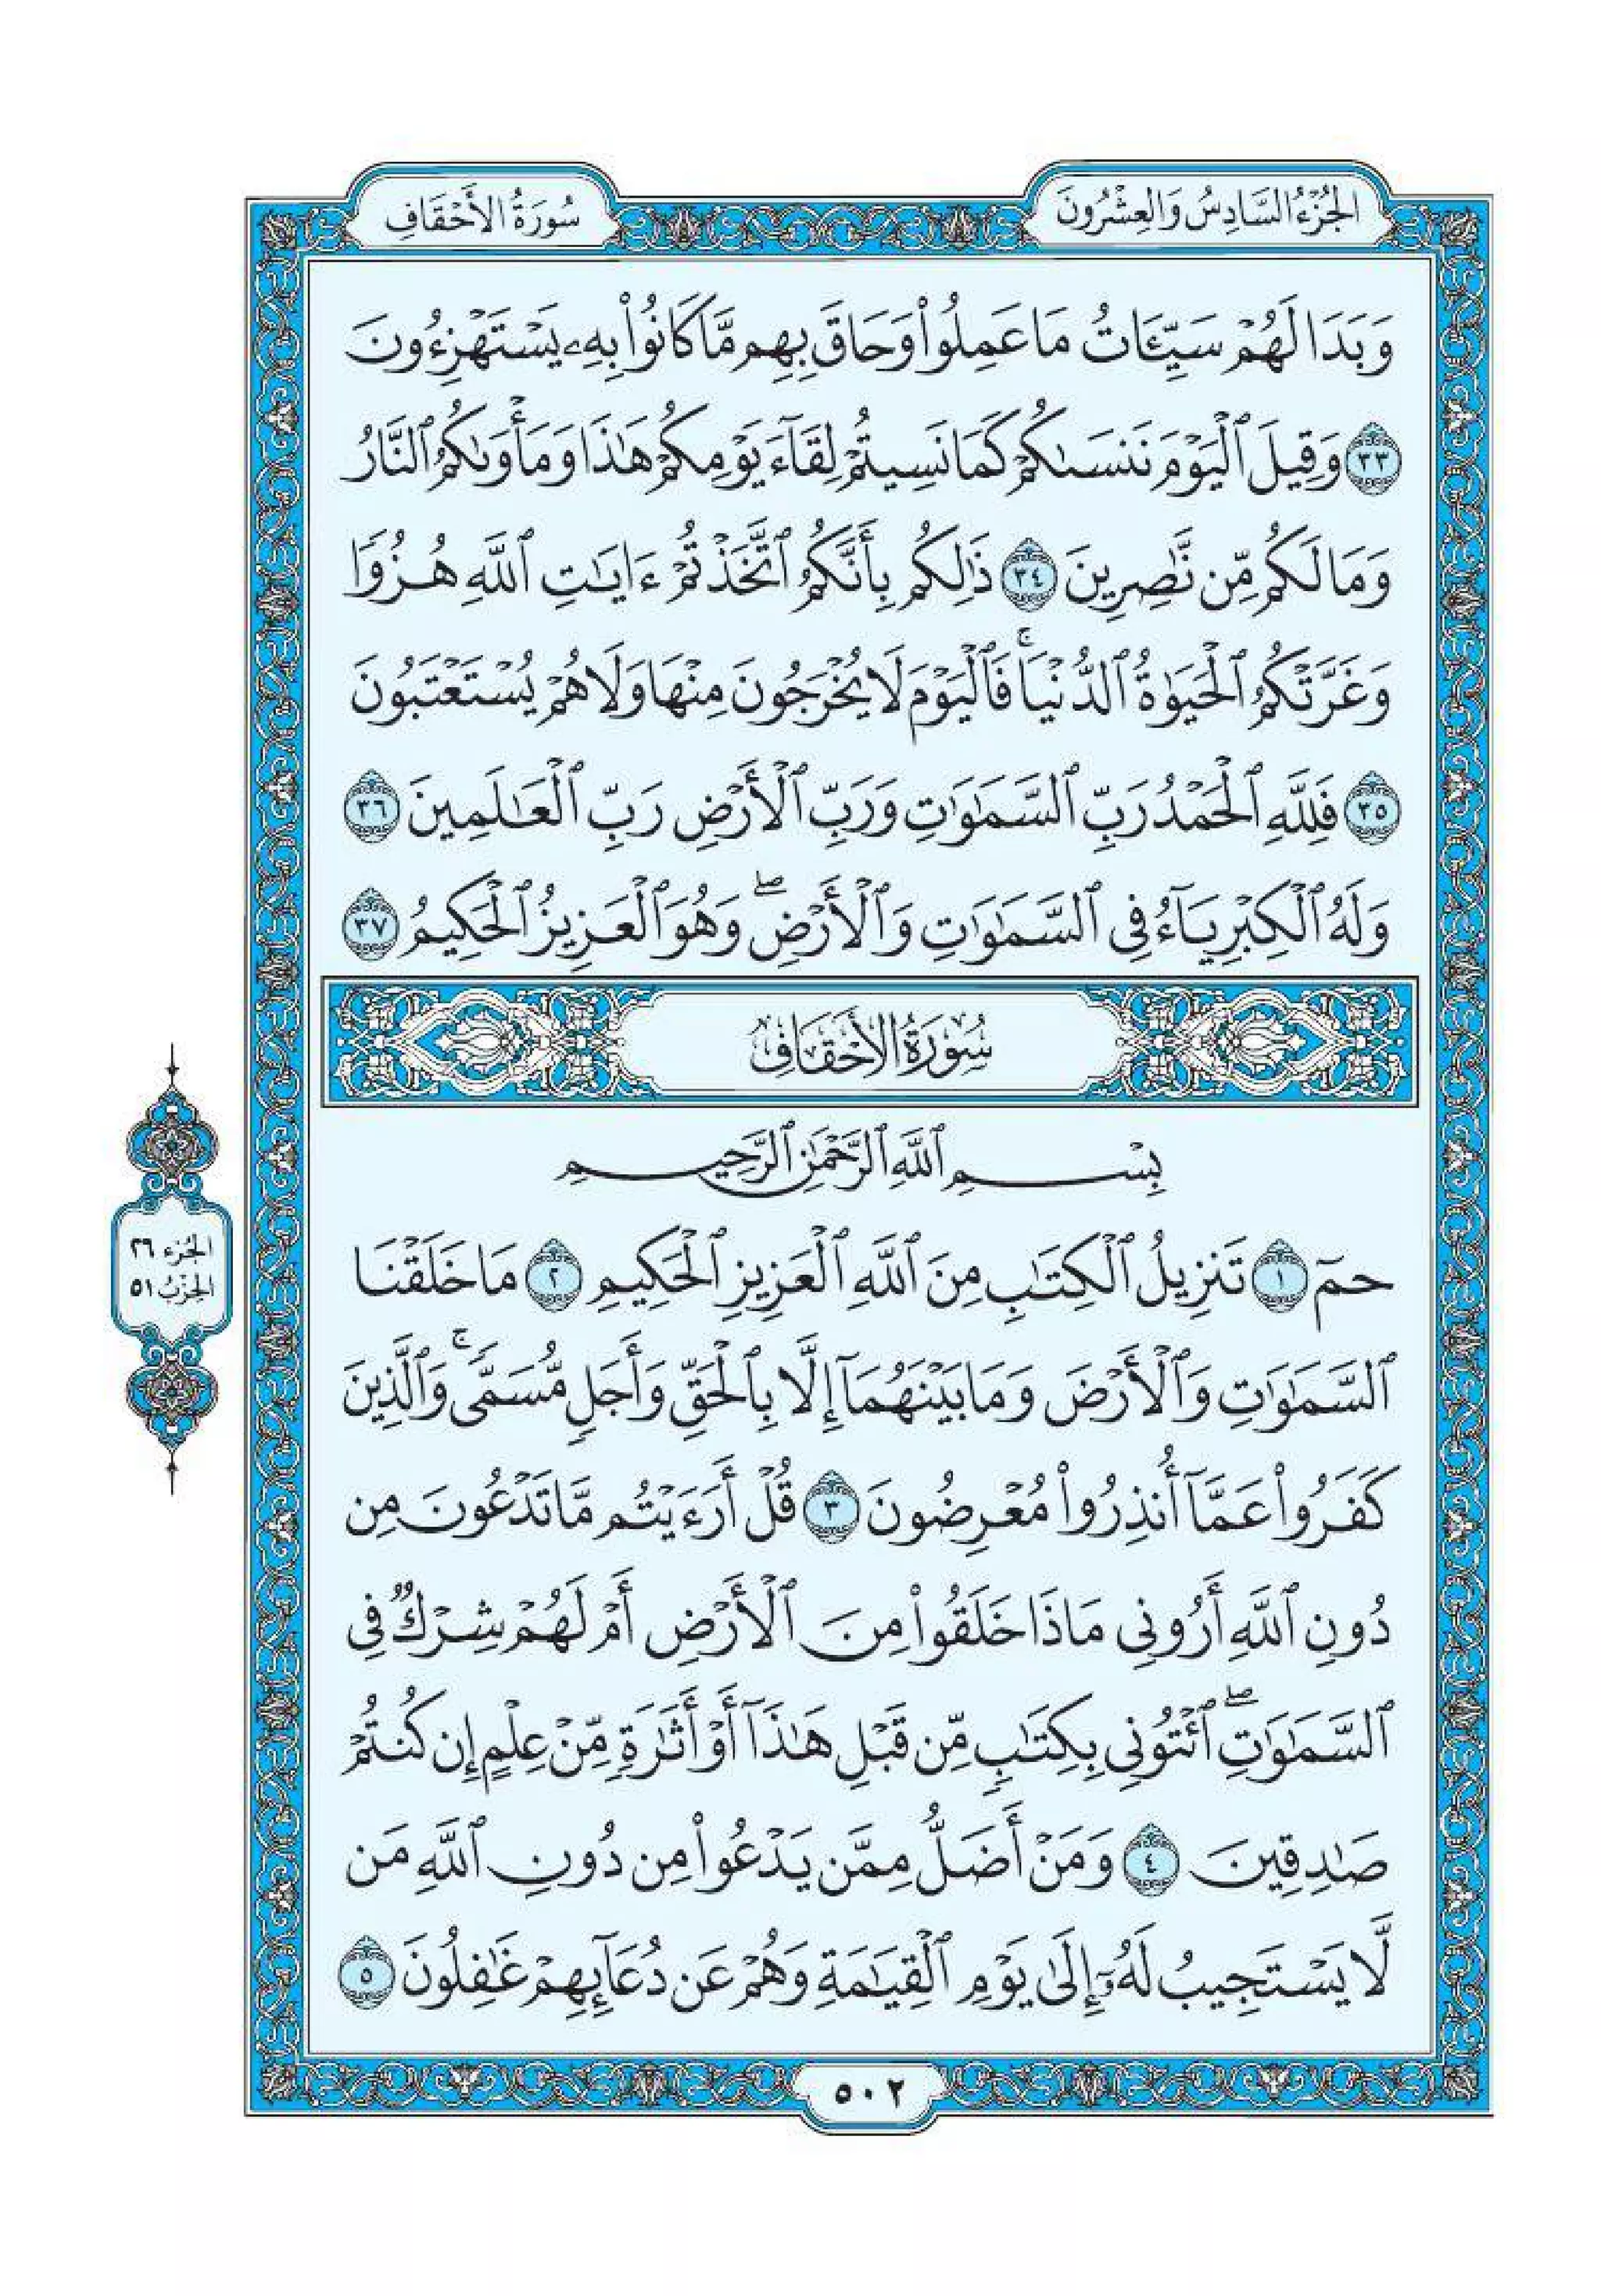 الجُزْءُ السَّادِسُ وَالْعِشْرُونَ
سُورَةُ الأَحْقَافِ
وَبَدَا لَهُمْ سَيِّـَٔاتُ مَا عَمِلُوا۟ وَحَاقَ بِهِم مَّا كَانُوا۟ بِهِۦ يَسْتَهْزِءُونَ
٣٣ وَقِيلَ ٱلْيَوْمَ نَنسَىٰكُمْ كَمَا نَسِيتُمْ لِقَآءَ يَوْمِكُمْ هَـٰذَا وَمَأْوَىٰكُمُ ٱلنَّارُ
وَمَا لَكُم مِّن نَّـٰصِرِينَ ٣٤ ذَٰلِكُم بِأَنَّكُمُ ٱتَّخَذْتُمْ ءَايَـٰتِ ٱللَّهِ هُزُوًا
وَغَرَّتْكُمُ ٱلْحَيَوٰةُ ٱلدُّنْيَا ۚ فَٱلْيَوْمَ لَا يُخْرَجُونَ مِنْهَا وَلَا هُمْ يُسْتَعْتَبُونَ
٣٥ فَلِلَّهِ ٱلْحَمْدُ رَبِّ ٱلسَّمَـٰوَٰتِ وَرَبِّ ٱلْأَرْضِ رَبِّ ٱلْعَـٰلَمِينَ ٣٦
وَلَهُ ٱلْكِبْرِيَآءُ فِى ٱلسَّمَـٰوَٰتِ وَٱلْأَرْضِ ۖ وَهُوَ ٱلْعَزِيزُ ٱلْحَكِيمُ ٣٧
سُورَةُ الأَحْقَافِ
بِسْمِ ٱللَّهِ ٱلرَّحْمَـٰنِ ٱلرَّحِيمِ
حمٓ ١ تَنزِيلُ ٱلْكِتَـٰبِ مِنَ ٱللَّهِ ٱلْعَزِيزِ ٱلْحَكِيمِ ٢ مَا خَلَقْنَا
ٱلسَّمَـٰوَٰتِ وَٱلْأَرْضَ وَمَا بَيْنَهُمَآ إِلَّا بِٱلْحَقِّ وَأَجَلٍ مُّسَمًّى ۚ وَٱلَّذِينَ
كَفَرُوا۟ عَمَّآ أُنذِرُوا۟ مُعْرِضُونَ ٣ قُلْ أَرَءَيْتُم مَّا تَدْعُونَ مِن
دُونِ ٱللَّهِ أَرُونِى مَاذَا خَلَقُوا۟ مِنَ ٱلْأَرْضِ أَمْ لَهُمْ شِرْكٌ فِى
ٱلسَّمَـٰوَٰتِ ۖ ٱئْتُونِى بِكِتَـٰبٍ مِّن قَبْلِ هَـٰذَآ أَوْ أَثَـٰرَةٍ مِّنْ عِلْمٍ إِن كُنتُمْ
صَـٰدِقِينَ ٤ وَمَنْ أَضَلُّ مِمَّن يَدْعُوا۟ مِن دُونِ ٱللَّهِ مَن
لَّا يَسْتَجِيبُ لَهُۥٓ إِلَىٰ يَوْمِ ٱلْقِيَـٰمَةِ وَهُمْ عَن دُعَآئِهِمْ غَـٰفِلُونَ ٥
الجُزء ٢٦
الحِزْبُ ٥١
٥٠٢